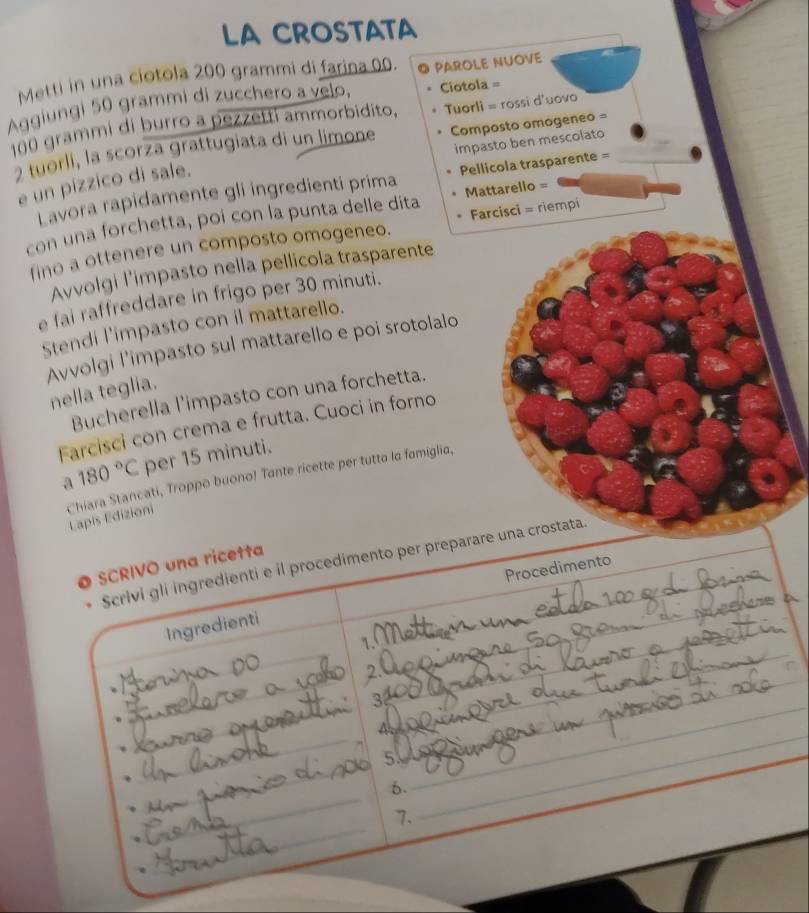 LA CROSTATA
Metti in una ciotola 200 grammi di farina 00.
Aggiungi 50 grammi di zucchero a velo,
100 grammi di burro a pezzetti ammorbidito,
2 tuorli, la scorza grattugiata di un limone
e un pizzico di sale.
Lavora rapidamente gli ingredienti prima
con una forchetta, poi con la punta delle dita
fino a ottenere un composto omogeneo.
Avvolgi l'impasto nella pellicola trasparente
e fai raffreddare in frigo per 30 minuti.
Stendi l'impasto con il mattarello.
Avvolgi l'impasto sul mattarello e poi srotolalo
nella teglia.
Bucherella l'impasto con una forchetta.
Farcisci con crema e frutta. Cuoci in forno
a 180 °C per 15 minuti.
Chiara Stancati, Troppo buono! Tante ricette per tutta la famiglia,
Lapis Edizioni
PAROLE NUOVE
• Ciotola =
• Tuorli = rossi d'uovo
• Composto omogeneo =
impasto ben mescolato
• Pellicola trasparente =
• Mattarello =
• Farcisci = riempi
SCRIVO una ricetta
• Scrivi gli ingredienti e il procedimento per preparare una crostata.
Ingredienti
• farina 00
• a
•
• un
• un di
• crema
• frutta
Procedimento
1. in una 200 g di farina
2. 50 di a
3. 100 di a pezzettini
4. due
5. un di
6.
7.